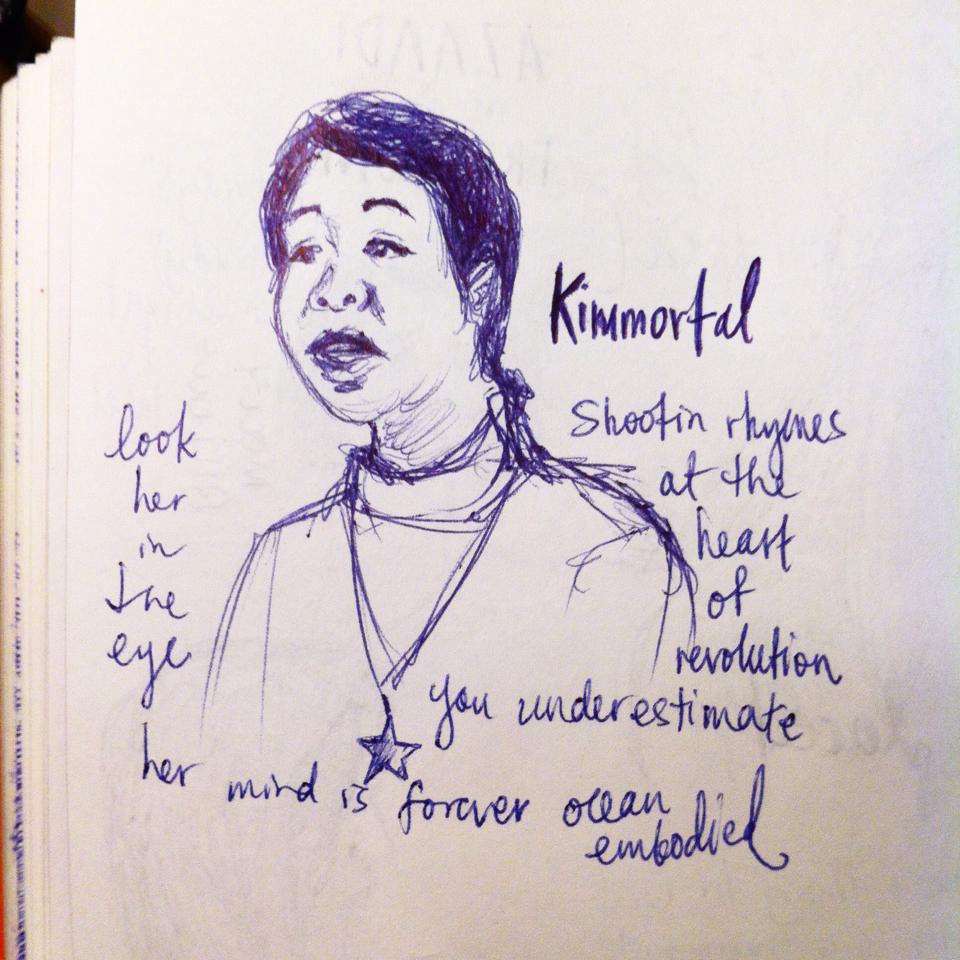 Kimmortal
Shootin rhymes
at the
heart
of
revolution
look
her
in
the
eye
you underestimate
her mind is forever ocean
embodied